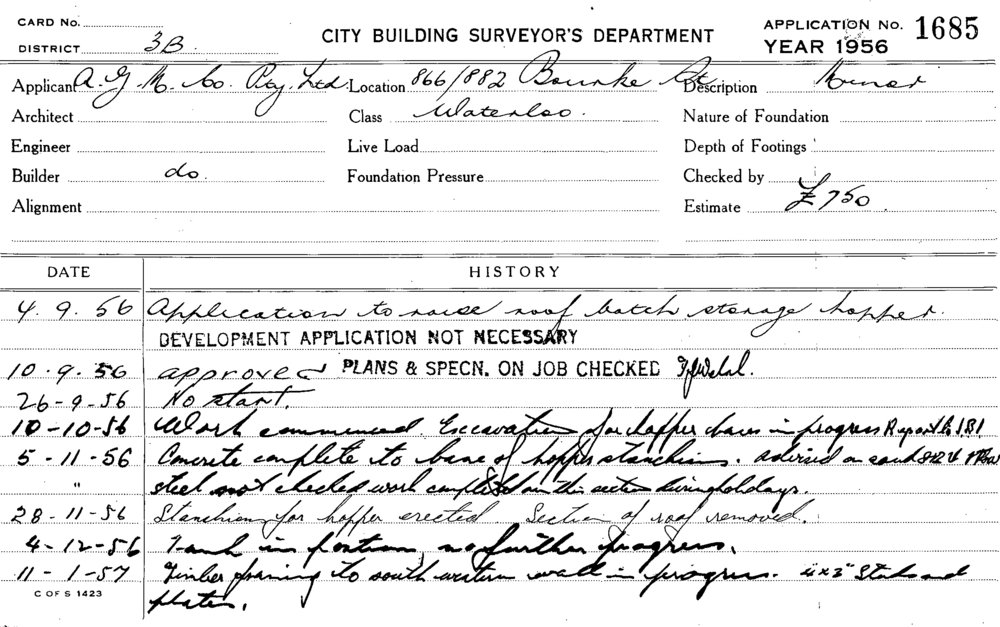 CARD No.
DISTRICT 3B
CITY BUILDING SURVEYOR'S DEPARTMENT
APPLICATION No. 1685
YEAR 1956
Applicant A. G. M. Co. Pty. Ltd. Location 866/882 Bourke St Description Minor
Architect Class Waterloo. Nature of Foundation
Engineer Live Load Depth of Footings
Builder do. Foundation Pressure Checked by
Alignment Estimate £750
DATE HISTORY
4. 9. 56 Application to raise roof batch storage hopper.
DEVELOPMENT APPLICATION NOT NECESSARY
10. 9. 56 approved PLANS & SPECN. ON JOB CHECKED
26-9-56 No start.
10-10-56 Work commenced. Excavation for hopper bases in progress Report
5-11-56 Concrete complete to base of hopper stanchions. advised on
" steel not checked work completed on this section during holidays.
28-11-56 Stanchions for hopper erected. Section of roof removed.
4-12-56 Tank in position, no further progress.
11-1-57 Timber framing to south western wall in progress. 4x3" Studs and
plates.
C OF S 1423